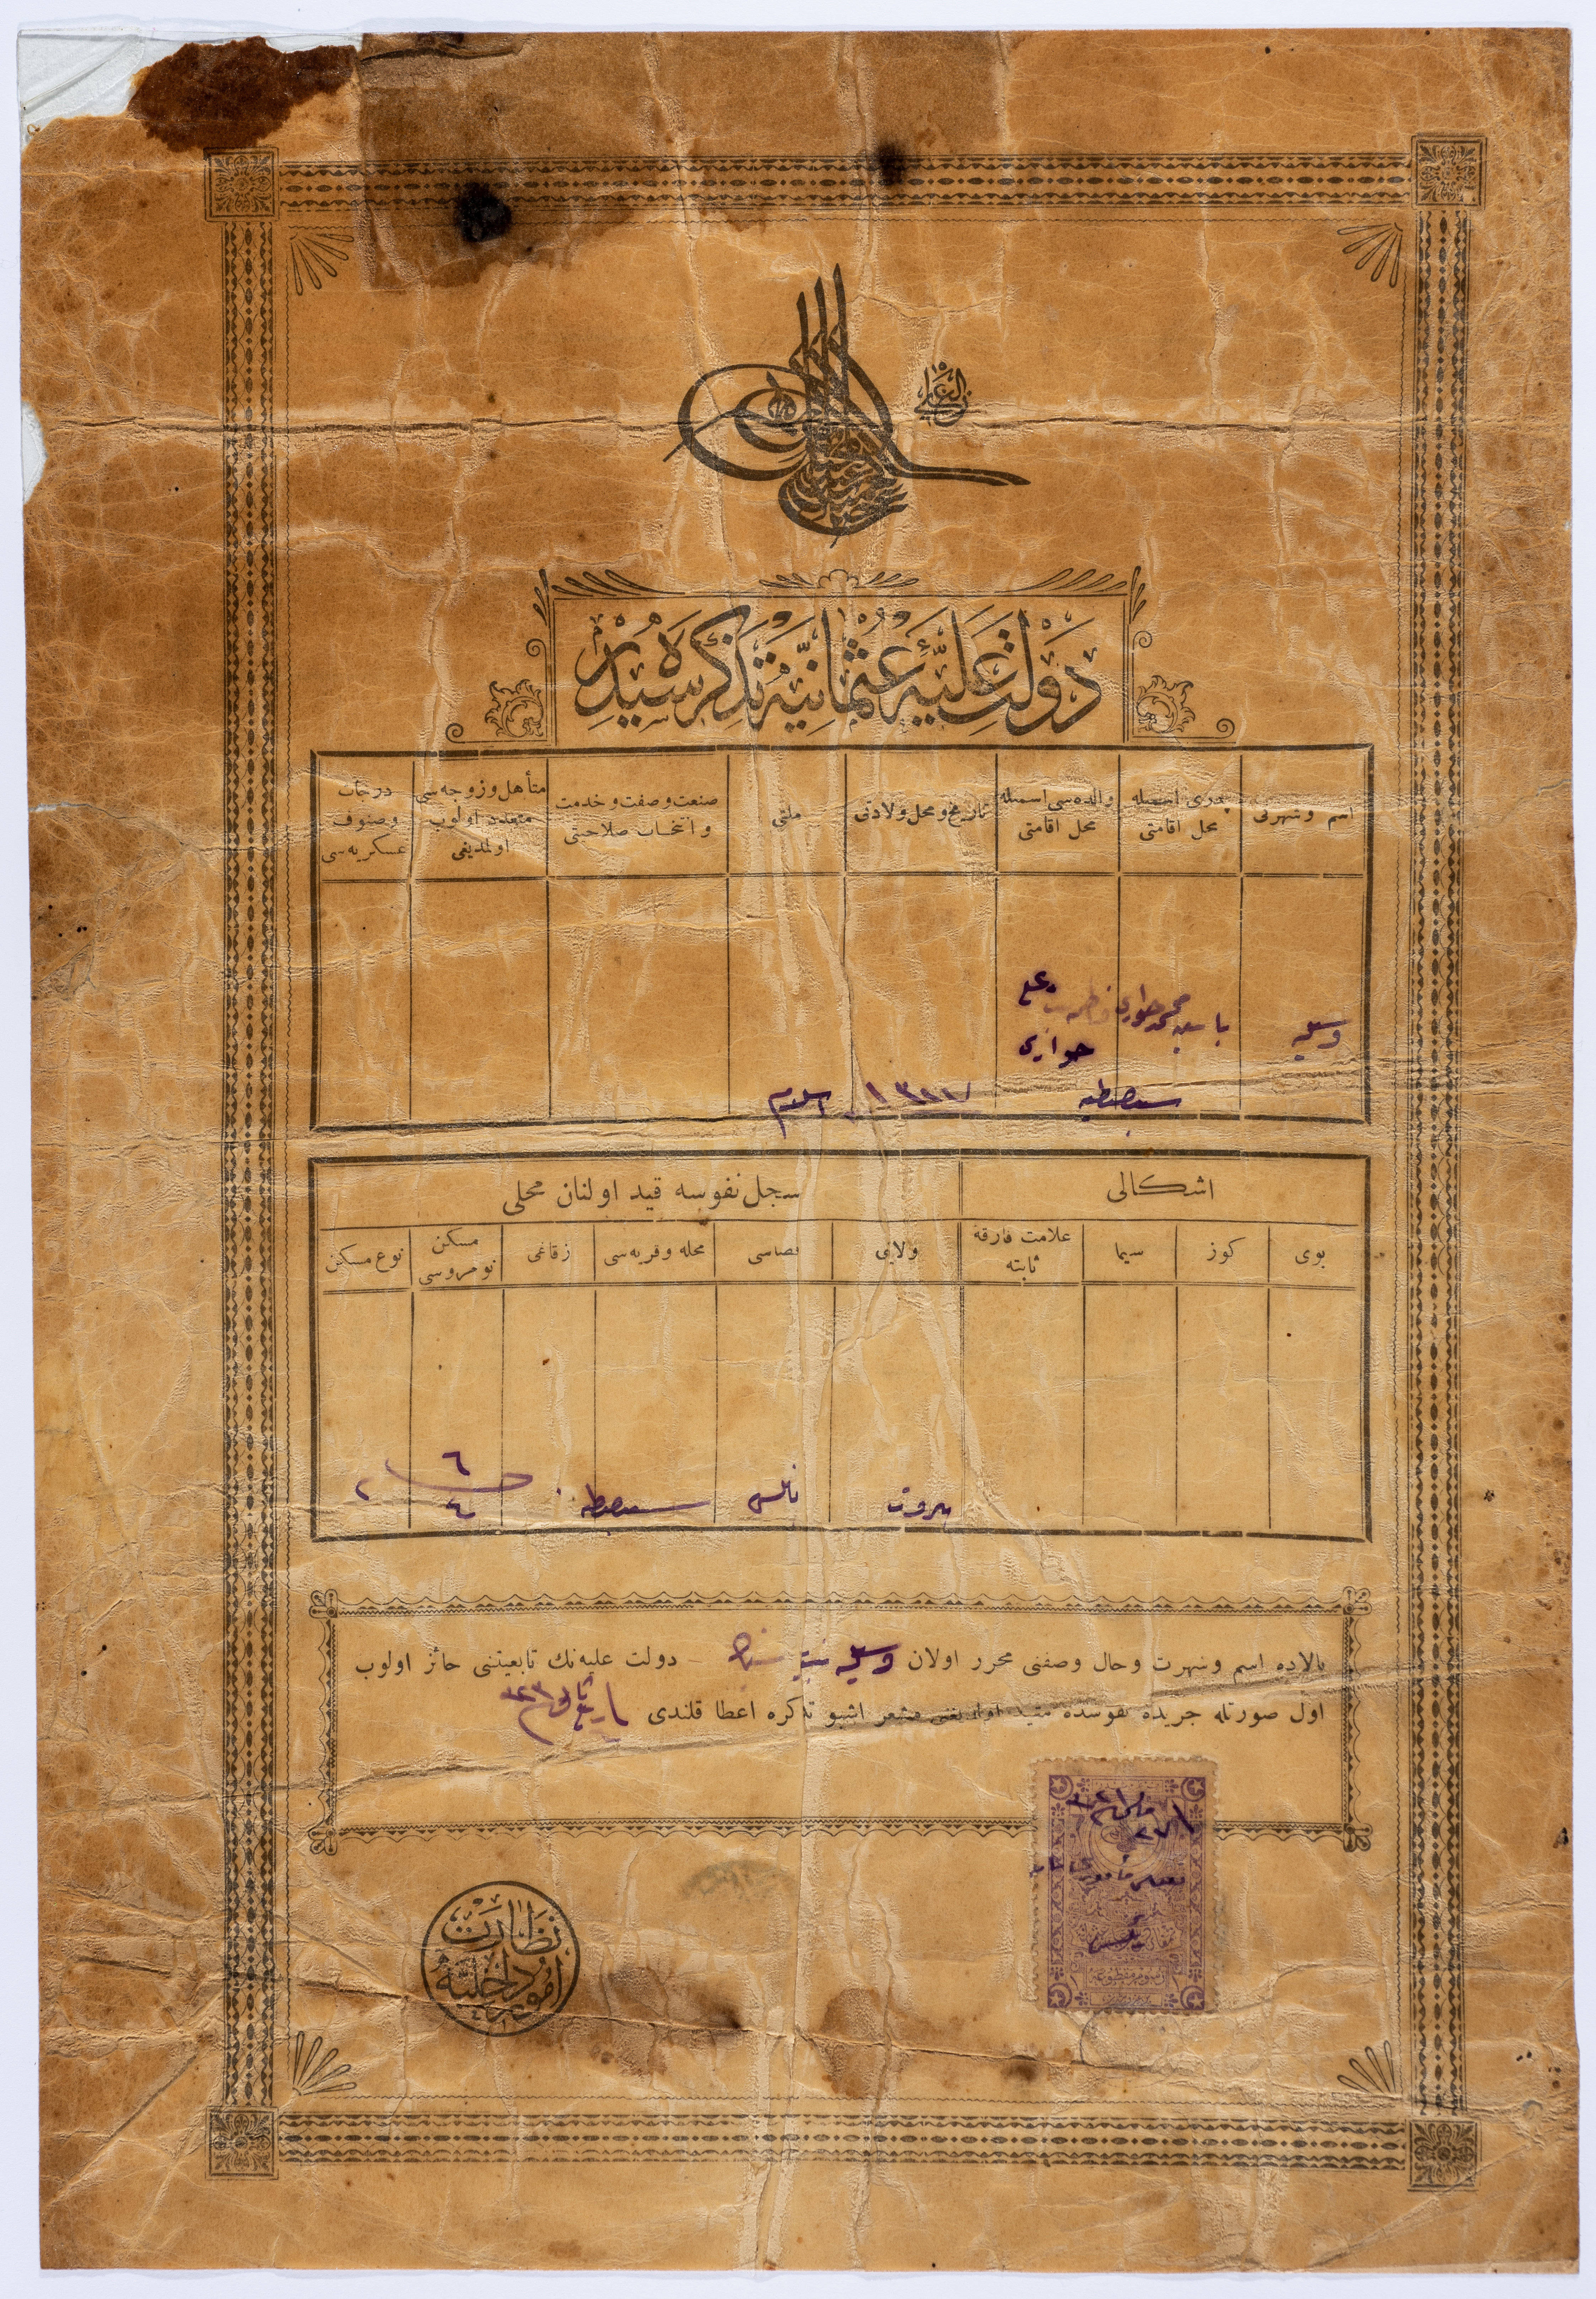 الغازی
دولت علیهٔ عثمانیه تذکره سیدر
اسم وشهرتی
پدری اسمیله محل اقامتی
والده سی اسمیله محل اقامتی
تاریخ و محل ولادتی
ملتی
صنعت وصفت وخدمت وانتخاب صلاحیتی
متأهل وزوجه سی متعدد اولوب اولمدیغی
درجات وصنوف عسکریه سی
وسیله
محمد حواری
علی
حواری
سبصطیه
اسلام
اشکالی
سجل نفوسه قید اولنان محلی
بوی
کوز
سیما
علامت فارقهٔ ثابته
ولایتی
قضاسی
محله وقریه سی
زقاغی
مسکن نومروسی
نوع مسکن
بیروت
نابلس
سبصطیه
٦
٤
بالاده اسم وشهرت وحال وصفتی محرر اولان وسیله بنت دولت علیه نك تابعیتنی حائز اولوب
اول صورتله جریدهٔ نفوسده مقید اولدیغنی مشعر اشبو تذکره اعطا قلندی
نابلس
نظارت امور داخلیه